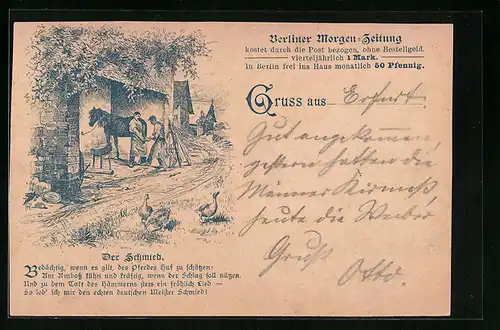 Berliner Morgen-Zeitung
kostet durch die Post bezogen, ohne Bestellgeld,
vierteljährlich 1 Mark.
In Berlin frei ins Haus monatlich 50 Pfennig.
Gruss aus Erfurt.
Gut angekommen,
gestern hatten die
Männer Kirmeß,
heute die Weiber
Gruß
Otto.
Der Schmied.
Bedächtig, wenn es gilt, des Pferdes Huf zu schützen;
Am Amboß kühn und kräftig, wenn der Schlag soll nützen,
Und zu dem Takt des Hämmerns stets ein fröhlich Lied —
So lob' ich mir den echten deutschen Meister Schmied!